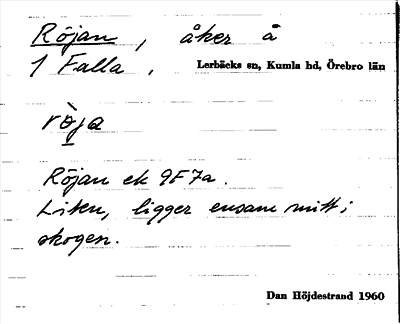 Röjan, åker å
1 Falla. Lerbäcks sn, Kumla hd, Örebro län
rö̀ja
Röjan ek 9F7a.
Liten, ligger ensam mitt i
skogen.
Dan Höjdestrand 1960